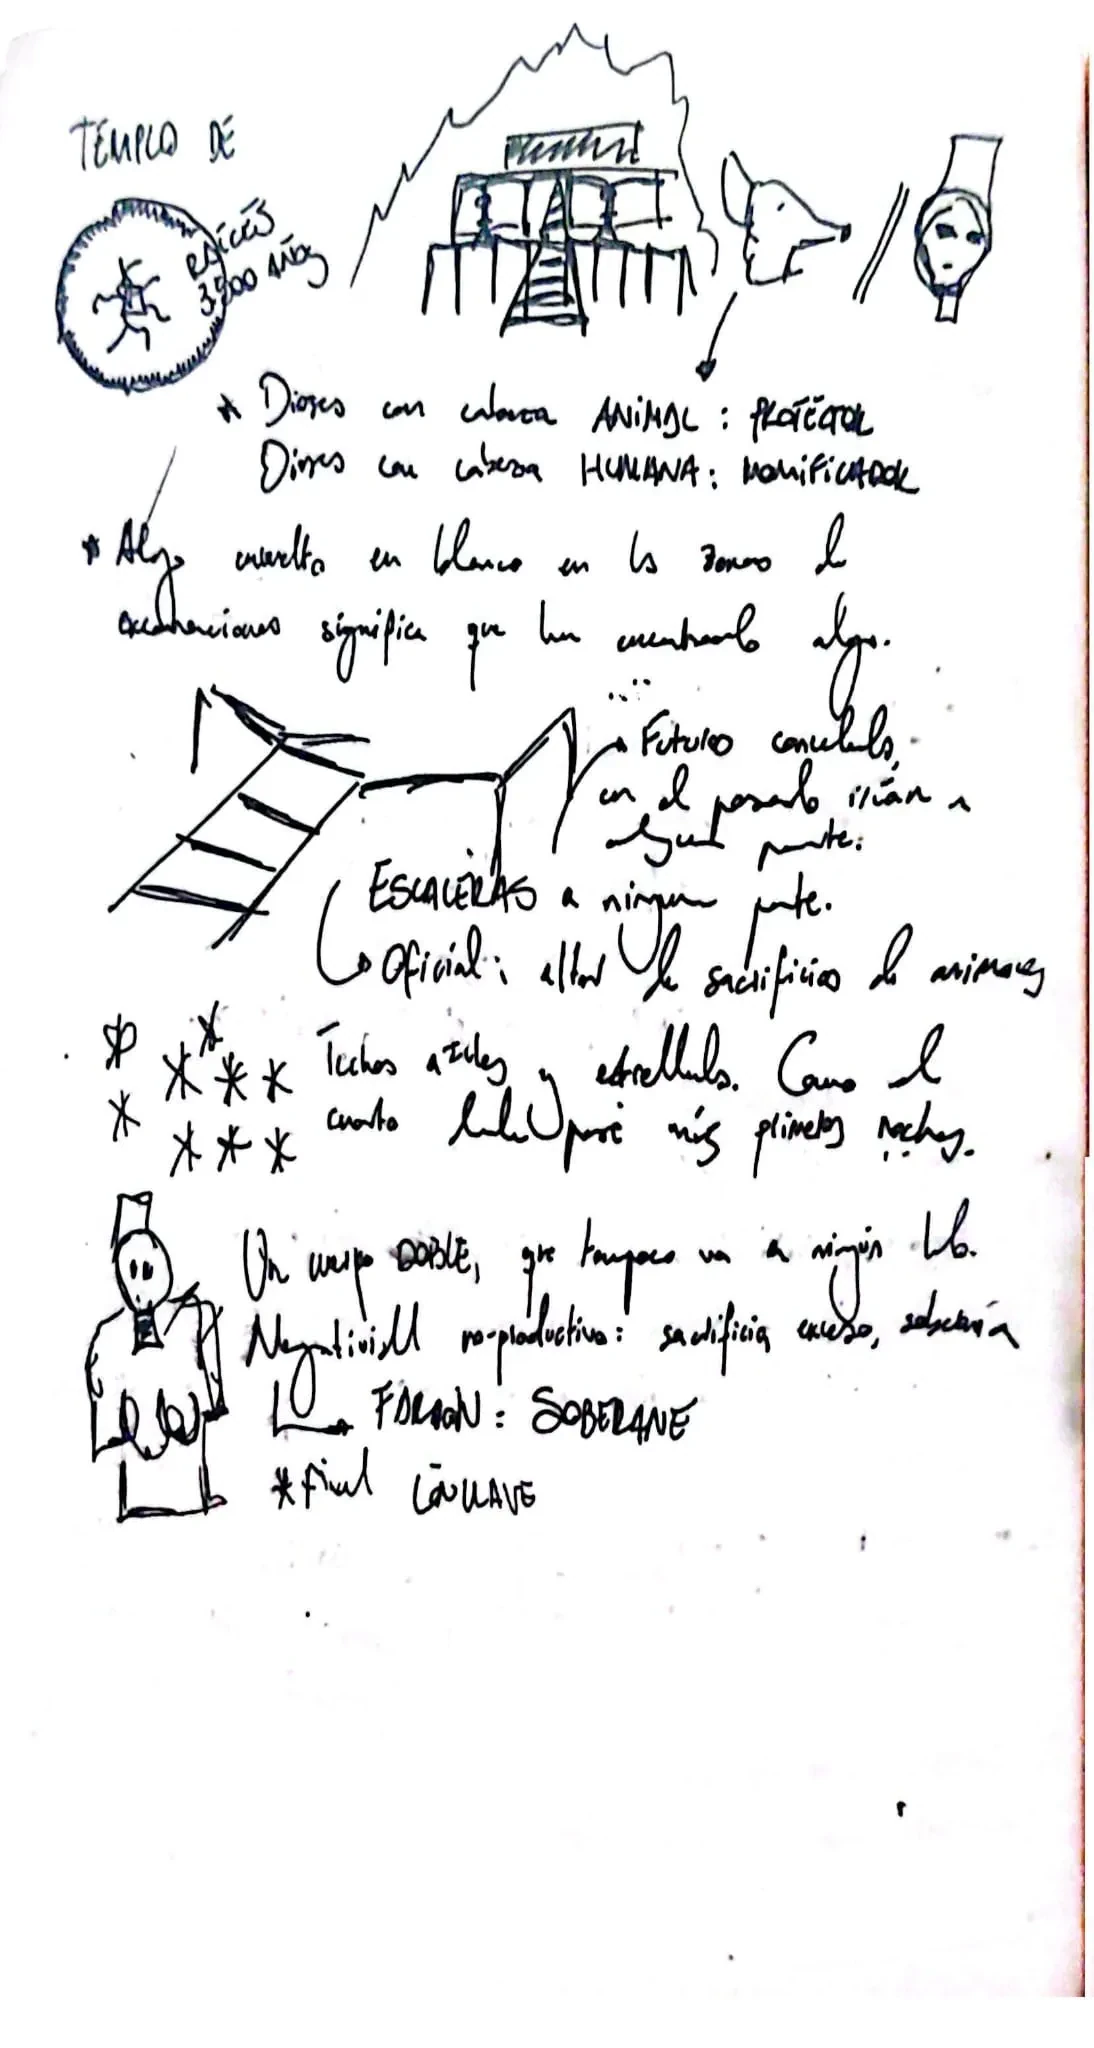 TEMPLO DE
RAÍCES
3.500 AÑOS
* Dioses con cabeza ANIMAL : PROTECTOR
Dioses con cabeza HUMANA : MOMIFICADOR
* Algo envuelto en blanco en las zonas de
excavaciones significa que han encontrado algo.
→ Futuro cancelado,
en el pasado irían a
alguna parte.
ESCALERAS a ninguna parte.
→ Oficial: altar de sacrificios de animales
Techos azules y estrellados. Como el
cuarto donde pasé mis primeras noches.
Un cuerpo DOBLE, que tampoco va a ningún lado.
Negatividad no-productiva: sacrificio, exceso, soberanía
→ FARAÓN : SOBERANE
* Final CÓNCLAVE